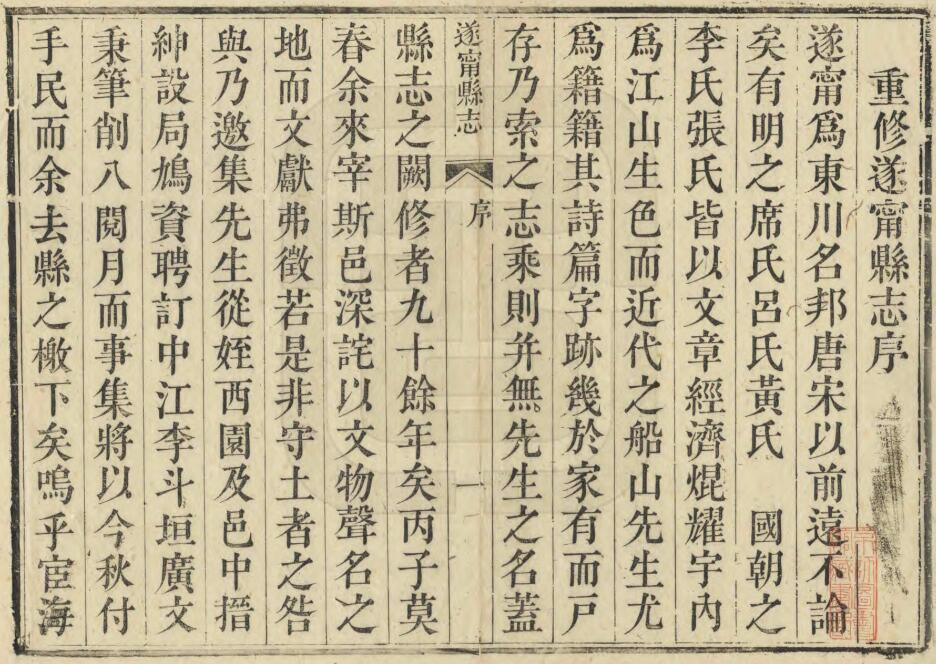 重修遂甯縣志序
遂甯爲東川名邦唐宋以前遠不論
矣有明之席氏呂氏黃氏　國朝之
李氏張氏皆以文章經濟焜耀宇內
爲江山生色而近代之船山先生尤
爲籍籍其詩篇字跡幾於家有而戸
存乃索之志乘則并無先生之名蓋
遂甯縣志　序　一
縣志之闕修者九十餘年矣丙子莫
春余來宰斯邑深詫以文物聲名之
地而文獻弗徵若是非守土者之咎
與乃邀集先生從姪西園及邑中搢
紳設局鳩資聘訂中江李斗垣廣文
秉筆削八閱月而事集將以今秋付
手民而余去縣之檄下矣嗚乎宦海